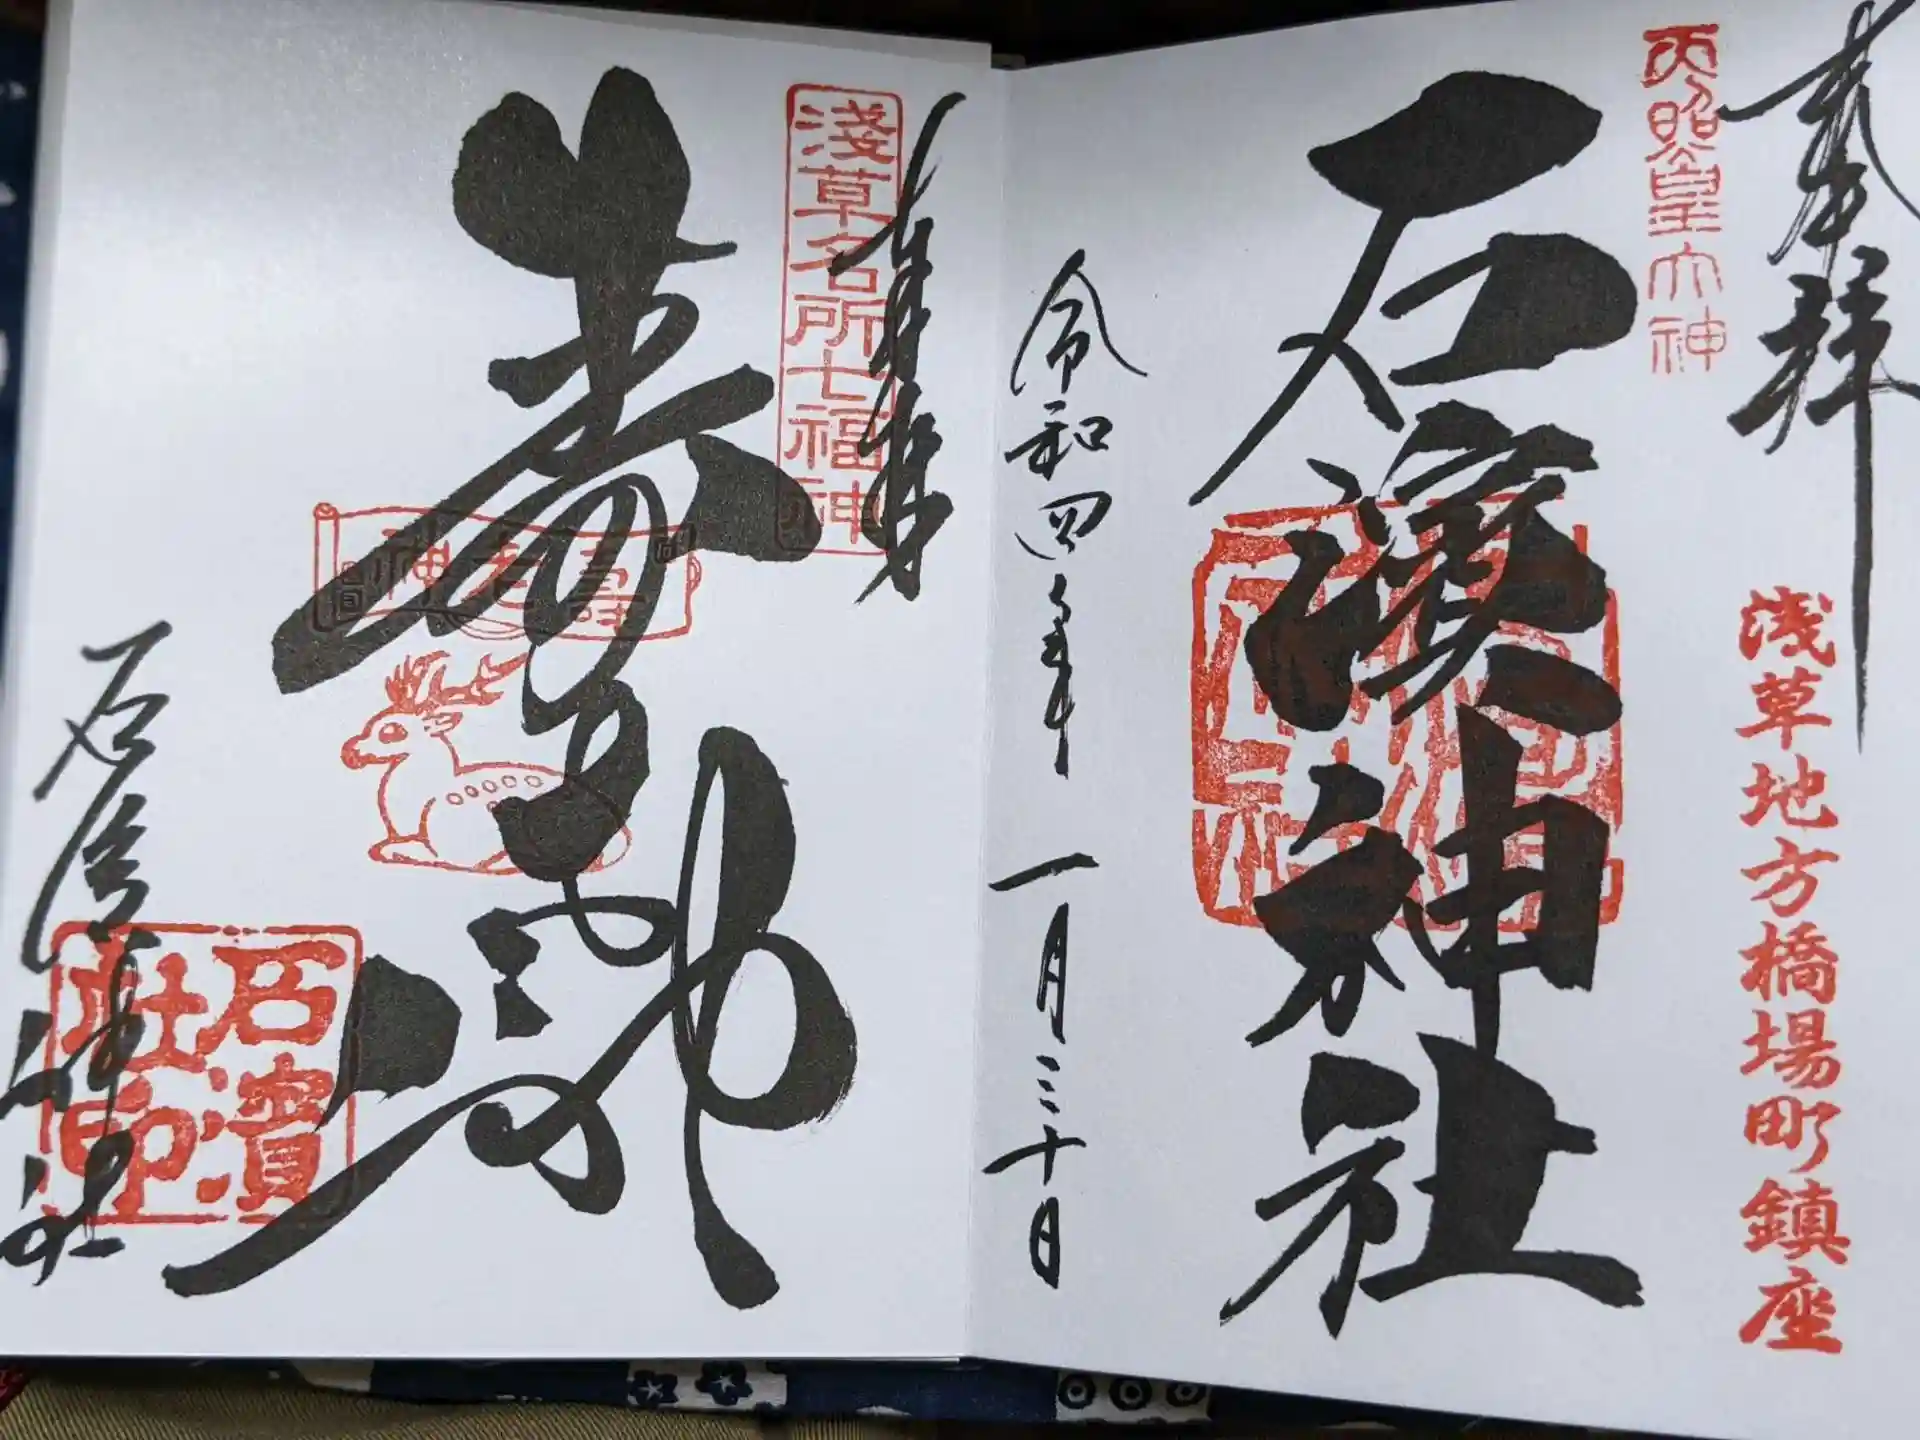 奉拝
天照皇大神
浅草地方橋場町鎮座
石濱神社
令和四年一月三十日
奉拝
淺草名所七福神
寿老神
壽老神
石濱神社
石濱
社印